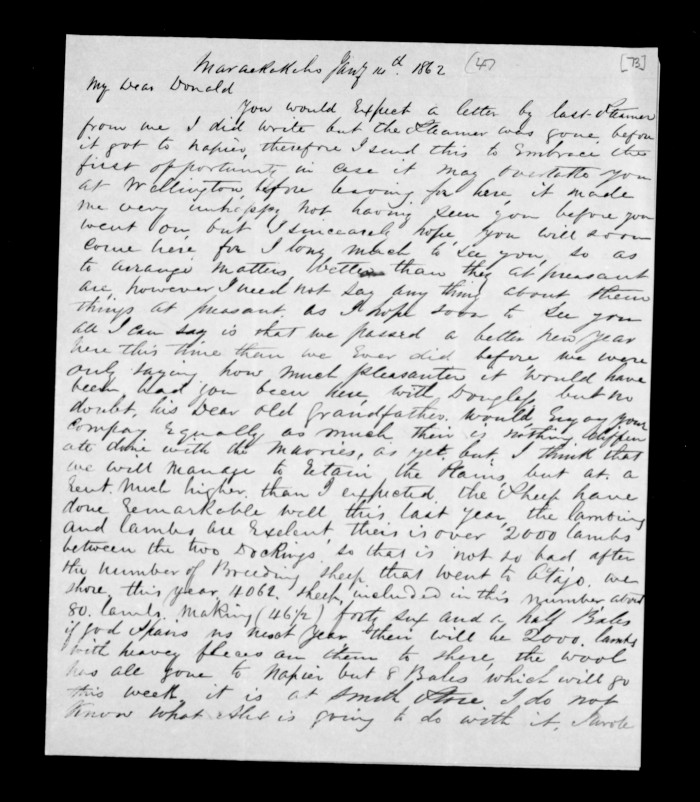 Maraekakaho Jany 14th. 1862 (4) [73]
My Dear Donald
You would Expect a letter by last Steamer
from me I did write but the Steamer was gone before
it got to Napier, therefore I send this to Embrace the
first opportunity in case it may overtake you
at Wellington before leaving for here, it made
me very unhappy not having seen you before you
went on, but I sincearely hope you will soon
come here, for I long much to see you, so as
to arrange matters, better than they at preasant
are, however I need not say any thing about them
things at preasant as I hope soon to see you
all I can say is that we passed a better new year
here this time than we Ever did before we were
only saying how much pleasanter it would have
been had you been here, with Douglas, but no
doubt, his Dear old Grandfather would Enjoy your
Compay Equally as much, their is nothing diffen
ate done with the Maories, as yet but I think that
we will manage to Retain the Plains but at a
Rent. Much higher than I expected the Sheep have
done Remarkable well this last year the lambing
and lambs are Exelent their is over 2000 lambs
between the two Dockings so that is not so bad after
the number of Breeding sheep that went to Otago. we
shore, this year, 4062. sheep, included in this number about
80. lambs, making (46½) forty six and a half Bales
if god spairs us next year their will be 2000. lambs
with heavey fleeces on them to shere, the wool
has all gone to Napier but 8 Bales which will go
this week, it is at Smith Store. I do not
Know what she is going to do with it.